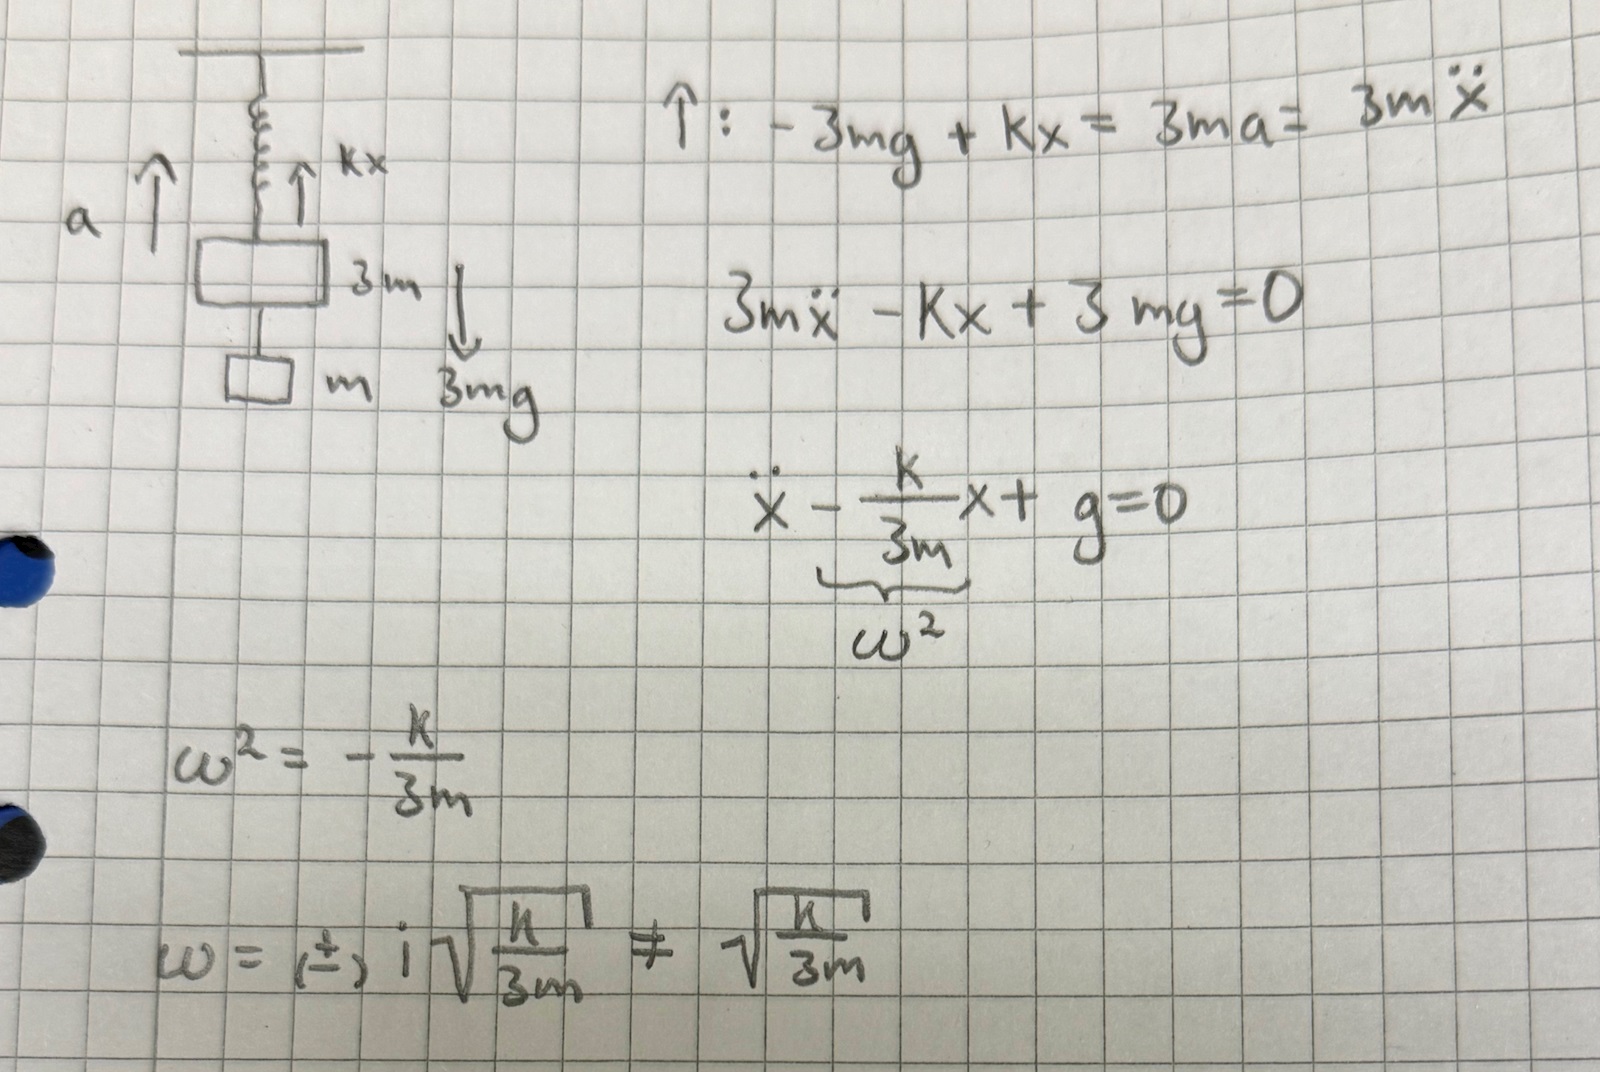 Kx
a
3m
m
3mg
↑: - 3mg + Kx = 3ma = 3mẍ
3mẍ - Kx + 3mg = 0
ẍ - K/3m x + g = 0
ω²
ω² = - K/3m
ω = (±) i √(K/3m) ≠ √(K/3m)